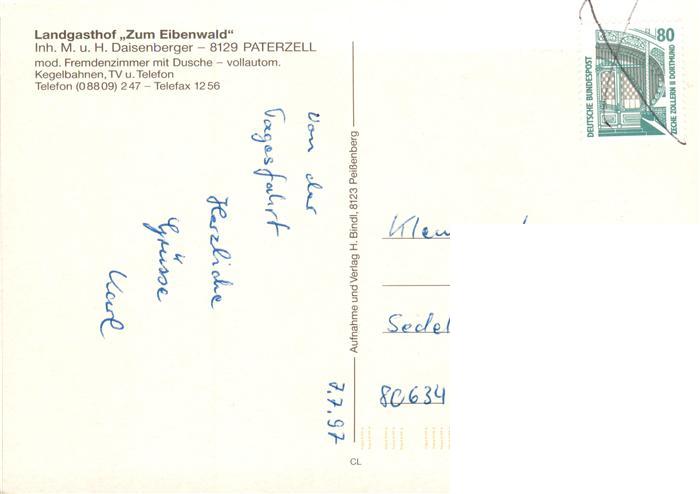 Landgasthof „Zum Eibenwald"
Inh. M. u. H. Daisenberger – 8129 PATERZELL
mod. Fremdenzimmer mit Dusche – vollautom.
Kegelbahnen, TV u. Telefon
Telefon (0 88 09) 2 47 – Telefax 12 56
Von der
Tagesfahrt
Herzliche
Grüsse
Karl
7.7.97
Aufnahme und Verlag H. Bindl, 8123 Peißenberg
CL
80
DEUTSCHE BUNDESPOST
ZECHE ZOLLERN II DORTMUND
80634